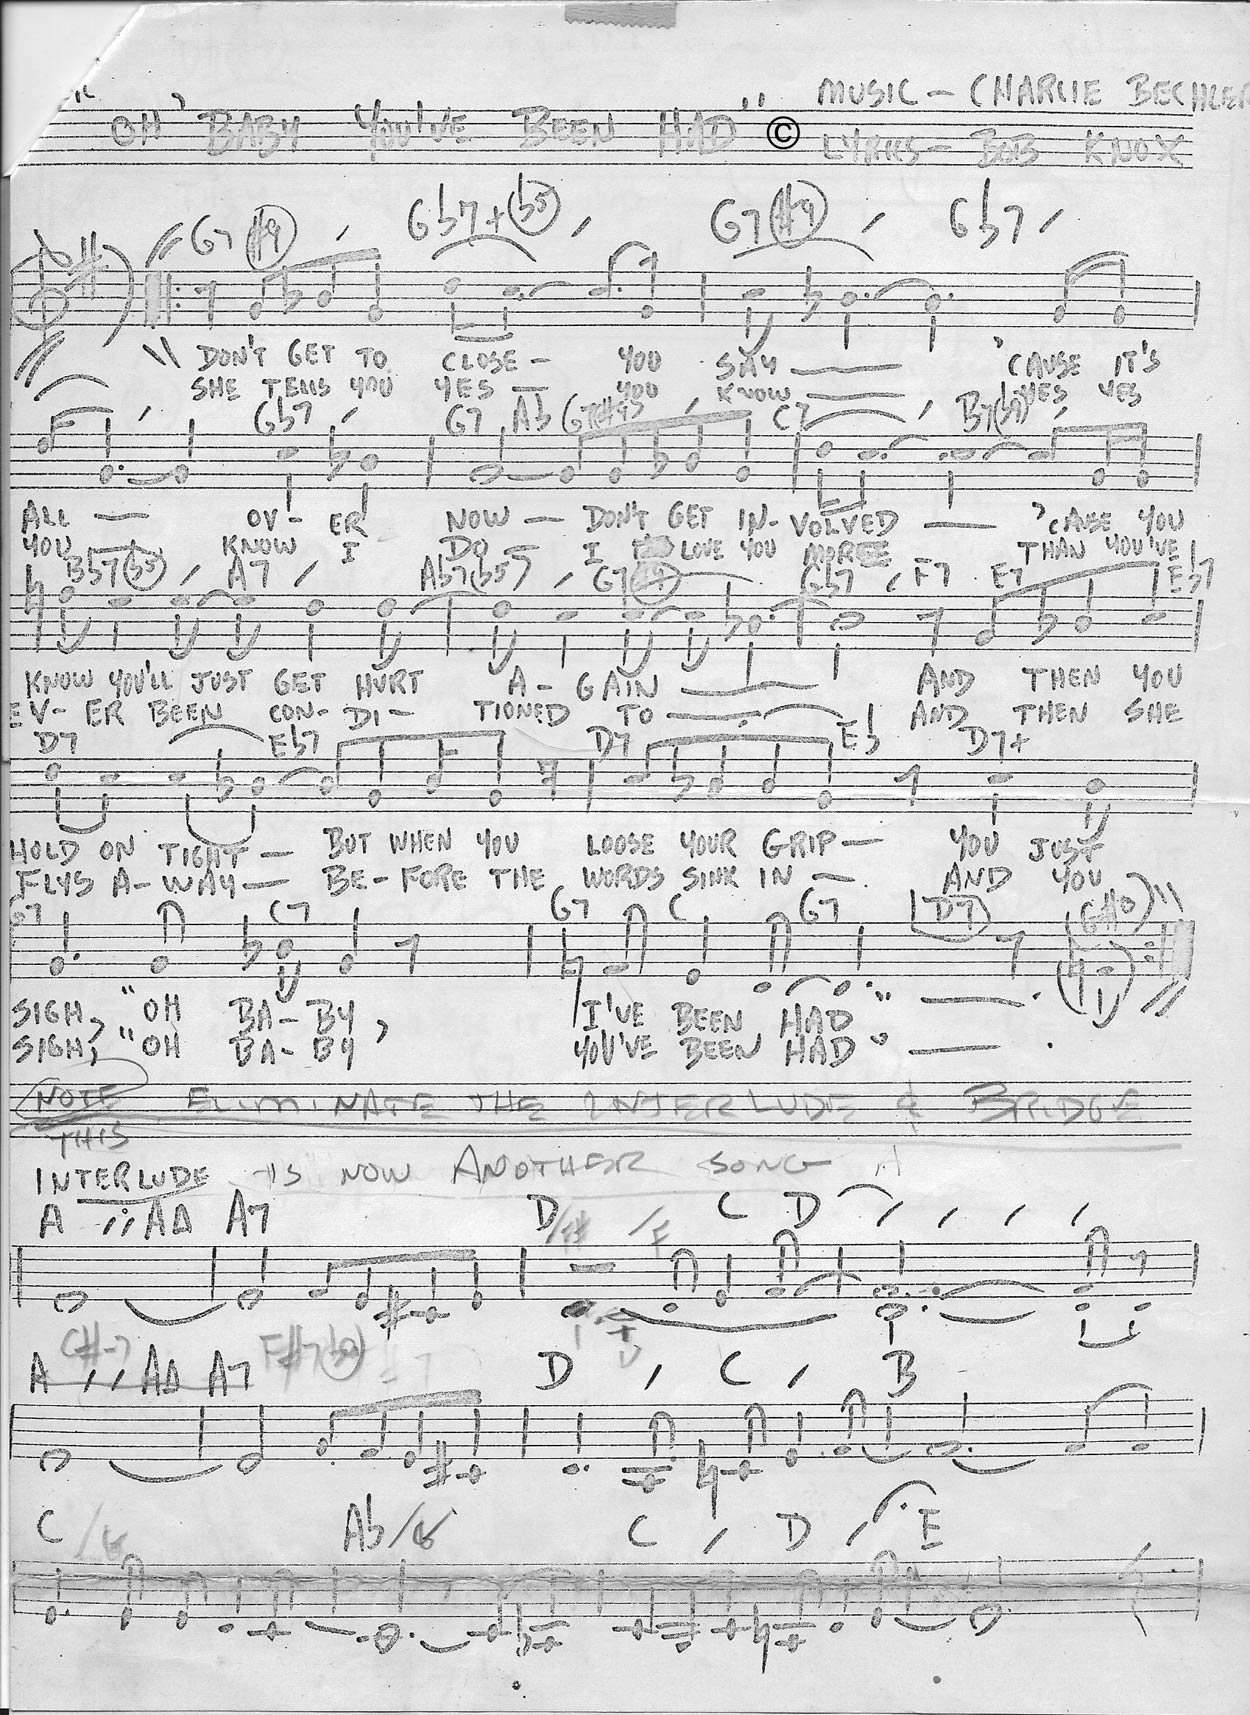 MUSIC - CHARLIE BECHLER
OH BABY YOU'VE BEEN HAD" © LYRICS - BOB KNOX
G7 #9 / Gb7+(b5) / G7(#9) / Gb7 /
DON'T GET TO CLOSE - YOU SAY — 'CAUSE IT'S
SHE TELLS YOU YES — YOU KNOW — YES YES
/ Gb7 / G7 Ab G7(#9) / C7 / B7(b9) /
ALL — OV-ER NOW — DON'T GET IN-VOLVED — 'CAUSE YOU
YOU — KNOW I DO — I LOVE YOU MORE THAN YOU'VE
Bb7(b5) / A7 / Ab7(b5) / G7(#9) Gb7 / F7 E7 Eb7
KNOW YOU'LL JUST GET HURT A-GAIN — AND THEN YOU
EV-ER BEEN CON-DI-TIONED TO — AND THEN SHE
D7 Eb7 D7 Eb D7+
HOLD ON TIGHT — BUT WHEN YOU LOOSE YOUR GRIP — YOU JUST
FLYS A-WAY — BE-FORE THE WORDS SINK IN — AND YOU
G7 C7 G7 C G7 D7 (G#o)
SIGH, "OH BA-BY, I'VE BEEN HAD" —.
SIGH, "OH BA-BY YOU'VE BEEN HAD" — .
NOTE ELIMINATE THE INTERLUDE & BRIDGE
THIS
INTERLUDE IS NOW ANOTHER SONG
A // AΔ A7 D/F# /E C D / / / /
C#-7 F#7(b9)
A // AΔ A7 D / C / B
C /G Ab/G C / D / E